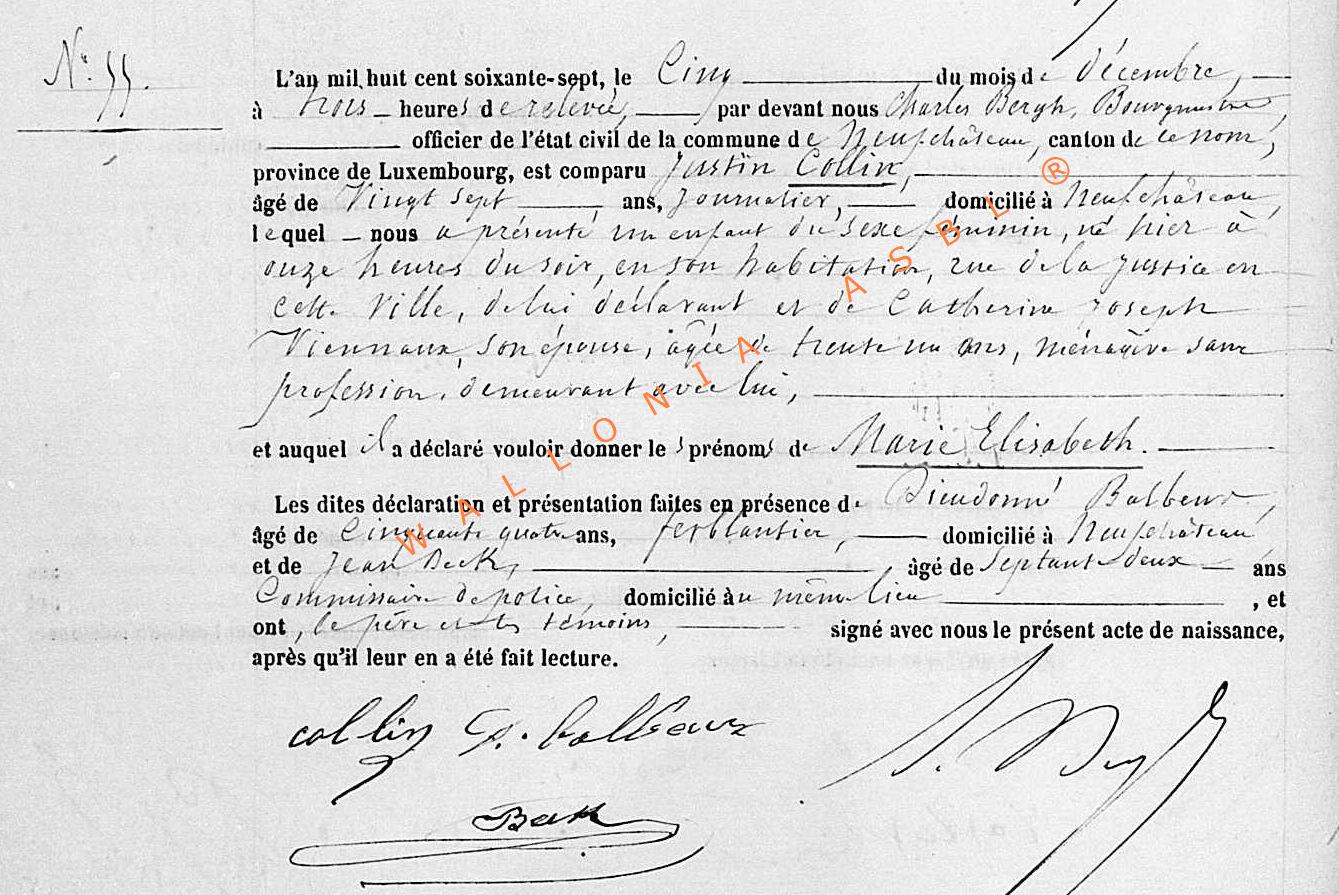 N° 55.
L'an mil huit cent soixante-sept, le Cinq du mois de décembre,
à trois heures de relevée, par devant nous Charles Bergh, Bourgmestre,
officier de l'état civil de la commune de Neufchâteau, canton de ce nom,
province de Luxembourg, est comparu Justin Collin,
âgé de Vingt sept ans, journalier, domicilié à Neufchâteau,
lequel nous a présenté un enfant du sexe féminin, né hier à
onze heures du soir, en son habitation, rue de la justice en
cette Ville, de lui déclarant et de Catherine Joseph
Viennaux, son épouse, agée de trente un ans, ménagère sans
profession, demeurant avec lui,
et auquel il a déclaré vouloir donner les prénoms de Marie Elisabeth.
Les dites déclaration et présentation faites en présence de Dieudonné Balbeur,
âgé de Cinquante quatre ans, ferblantier, domicilié à Neufchâteau
et de Jean Beck, âgé de Septante deux ans
Commissaire de police, domicilié au même lieu , et
ont, le père et les témoins, signé avec nous le présent acte de naissance,
après qu'il leur en a été fait lecture.
collin
Beck
WALLONIA ASBL ®